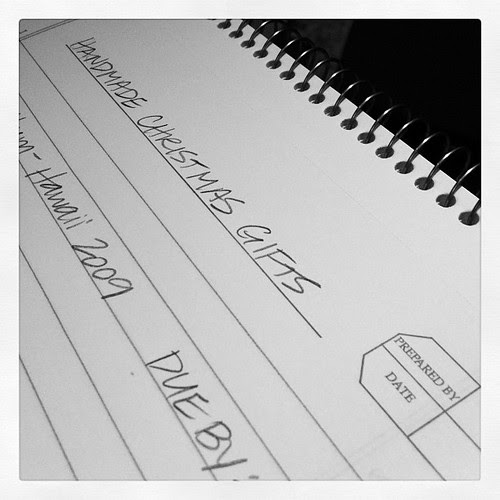 HANDMADE CHRISTMAS GIFTS
PREPARED BY
DATE
Hawaii 2009
DUE BY: